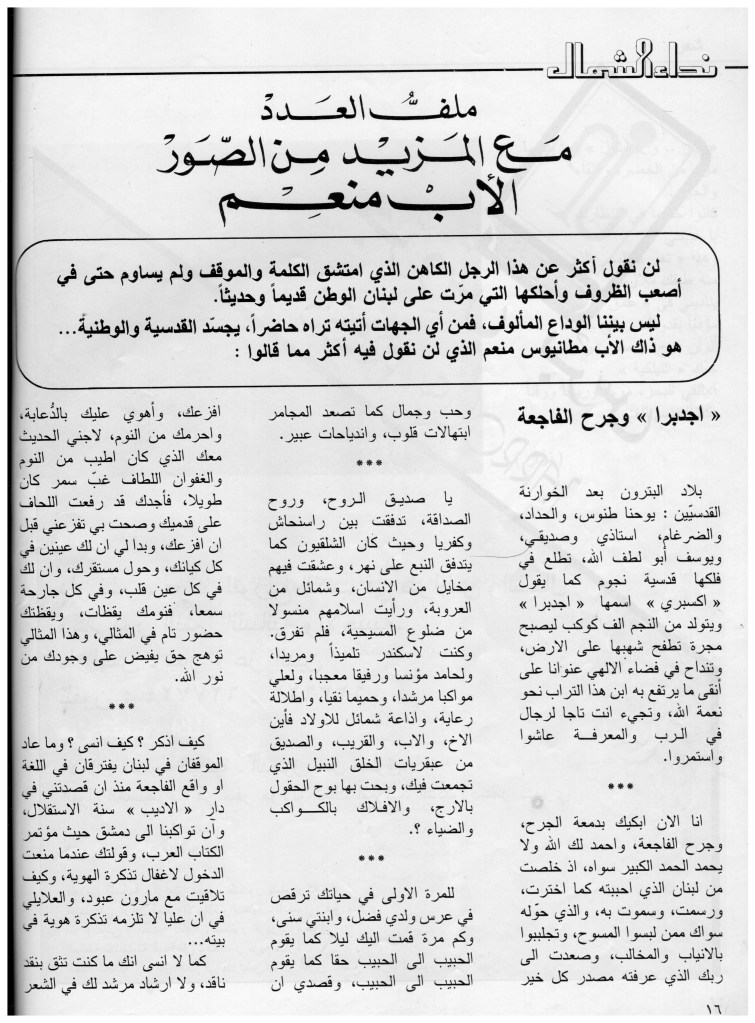 نداء الشمال
ملف العدد
مع المزيد من الصّور
الأب منعم
لن نقول أكثر عن هذا الرجل الكاهن الذي امتشق الكلمة والموقف ولم يساوم حتى في
أصعب الظروف وأحلكها التي مرّت على لبنان الوطن قديماً وحديثاً.
ليس بيننا الوداع المألوف، فمن أي الجهات أتيته تراه حاضراً، يجسّد القدسية والوطنية...
هو ذاك الأب مطانيوس منعم الذي لن نقول فيه أكثر مما قالوا :
« اجدبرا » وجرح الفاجعة
بلاد البترون بعد الخوارنة
القدسيّين : يوحنا طنوس، والحداد،
والضرغام، استاذي وصديقي،
ويوسف أبو لطف الله، تطلع في
فلكها قدسية نجوم كما يقول
« اكسبري » اسمها « اجدبرا »
ويتولد من النجم الف كوكب ليصبح
مجرة تطفح شهبها على الارض،
وتنداح في فضاء الالهي عنوانا على
أنقى ما يرتفع به ابن هذا التراب نحو
نعمة الله، وتجيء انت تاجا لرجال
في الرب والمعرفة عاشوا
واستمروا.
***
انا الان ابكيك بدمعة الجرح،
وجرح الفاجعة، واحمد لك الله ولا
يحمد الحمد الكبير سواه، اذ خلصت
من لبنان الذي احببته كما اخترت،
ورسمت، وسموت به، والذي حوّله
سواك ممن لبسوا المسوح، وتجلببوا
بالانياب والمخالب، وصعدت الى
ربك الذي عرفته مصدر كل خير
وحب وجمال كما تصعد المجامر
ابتهالات قلوب، واندياحات عبير.
***
يا صديق الروح، وروح
الصداقة، تدفقت بين راسنحاش
وكفريا وحيث كان الشلقيون كما
يتدفق النبع على نهر، وعشقت فيهم
مخايل من الانسان، وشمائل من
العروبة، ورأيت اسلامهم منسولا
من ضلوع المسيحية، فلم تفرق.
وكنت لاسكندر تلميذاً ومريدا،
ولحامد مؤنسا ورفيقا معجبا، ولعلي
مواكبا مرشدا، وحميما نقيا، واطلالة
رعاية، واذاعة شمائل للاولاد فأين
الاخ، والاب، والقريب، والصديق
من عبقريات الخلق النبيل الذي
تجمعت فيك، وبحت بها بوح الحقول
بالارج، والافلاك بالكواكب
والضياء ؟.
***
للمرة الاولى في حياتك ترقص
في عرس ولدي فضل، وابنتي سنى،
وكم مرة قمت اليك ليلا كما يقوم
الحبيب الى الحبيب حقا كما يقوم
الحبيب الى الحبيب، وقصدي ان
افزعك، وأهوي عليك بالدُّعابة،
واحرمك من النوم، لاجني الحديث
معك الذي كان اطيب من النوم
والغفوان اللطاف غبّ سمر كان
طويلا، فأجدك قد رفعت اللحاف
على قدميك وصحت بي تفزعني قبل
ان افزعك، وبدا لي ان لك عينين في
كل كيانك، وحول مستقرك، وان لك
في كل عين قلب، وفي كل جارحة
سمعا، فنومك يقظات، ويقظتك
حضور تام في المثالي، وهذا المثالي
توهج حق يفيض على وجودك من
نور الله.
***
كيف اذكر ؟ كيف انسى ؟ وما عاد
الموقفان في لبنان يفترقان في اللغة
او واقع الفاجعة منذ ان قصدتني في
دار « الاديب » سنة الاستقلال،
وآن تواكبنا الى دمشق حيث مؤتمر
الكتاب العرب، وقولتك عندما منعت
الدخول لاغفال تذكرة الهوية، وكيف
تلاقيت مع مارون عبود، والعلايلي
في ان عليا لا تلزمه تذكرة هوية في
بيته...
كما لا انسى انك ما كنت تثق بنقد
ناقد، ولا ارشاد مرشد لك في الشعر
١٦